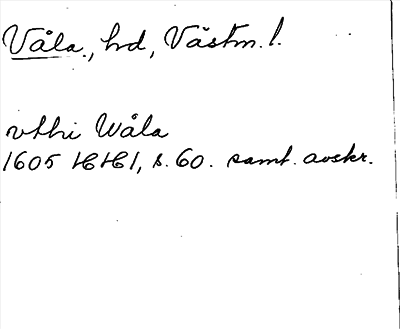 Våla., hd, Västm. l.
vthi Wåla
1605 HH1, s. 60. samt. avskr.